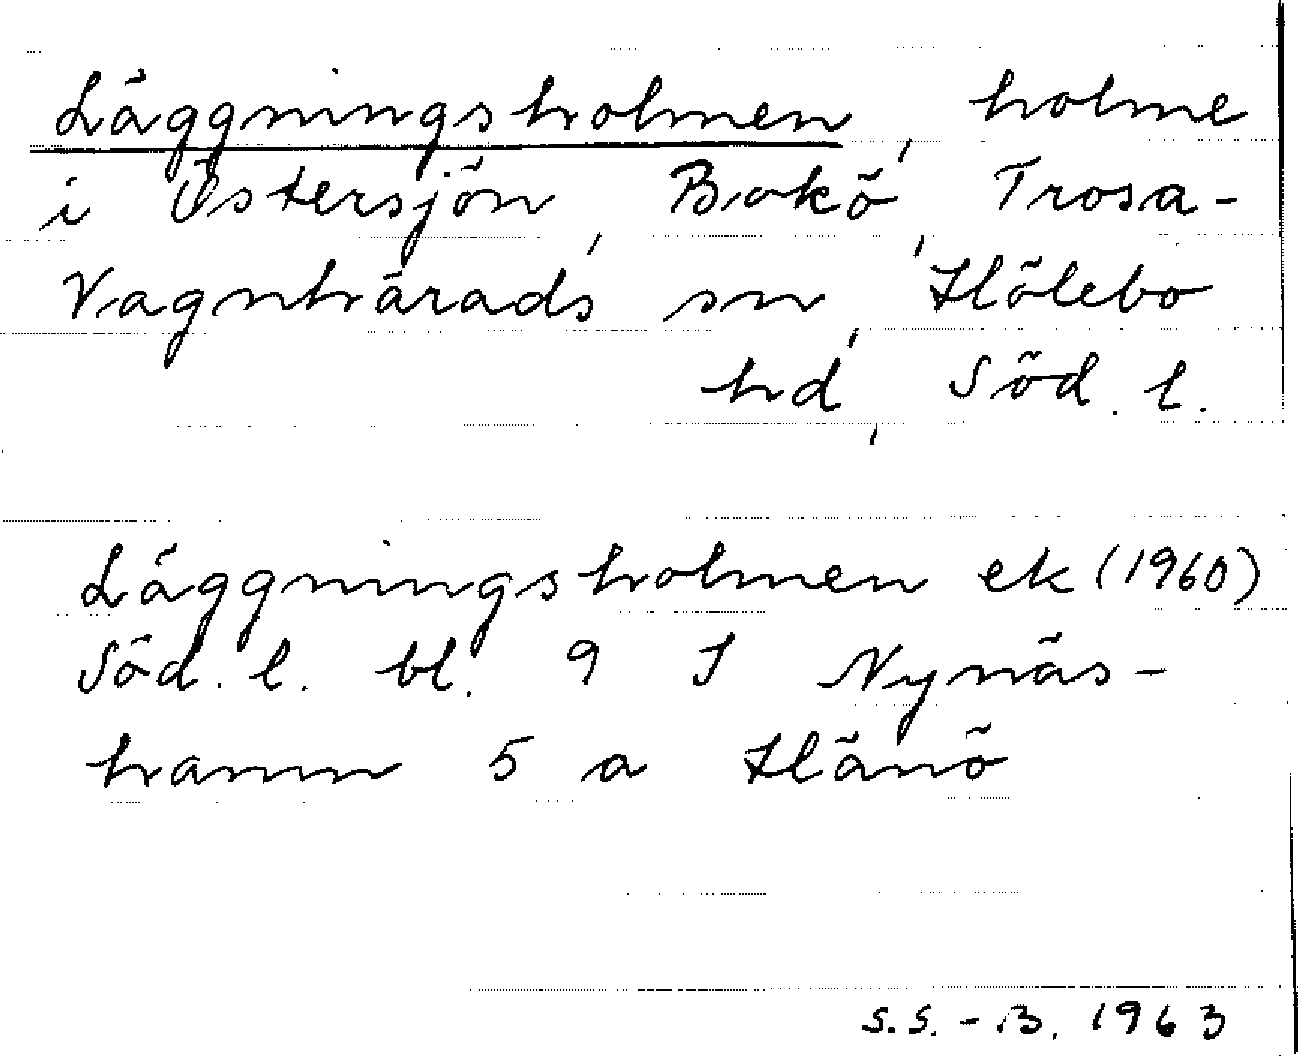 Läggningsholmen, holme
i Östersjön, Bokö, Trosa-
Vagnhärads sn, Hölebo
hd, Söd. l.
Läggningsholmen ek (1960)
Söd. l. bl. 9 I Nynäs-
hamn 5 a Hånö
S.S.-B. 1963